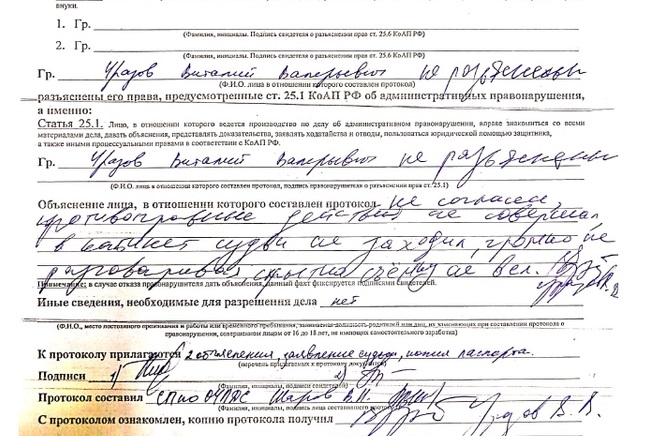 внуки.
1. Гр.
(Фамилия, инициалы. Подпись свидетеля о разъяснении прав ст. 25.6 КоАП РФ)
2. Гр.
(Фамилия, инициалы. Подпись свидетеля о разъяснении прав ст. 25.6 КоАП РФ)
Гр. Уразов Виталий Валерьевич не разъяснены
(Ф.И.О. лица в отношении которого составлен протокол)
разъяснены его права, предусмотренные ст. 25.1 КоАП РФ об административных правонарушения,
а именно:
Статья 25.1. Лицо, в отношении которого ведется производство по делу об административном правонарушении, вправе знакомиться со всеми
материалами дела, давать объяснения, представлять доказательства, заявлять ходатайства и отводы, пользоваться юридической помощью защитника,
а также иными процессуальными правами в соответствии с КоАП РФ.
Гр. Уразов Виталий Валерьевич не разъяснены
(Ф.И.О. лица в отношении которого составлен протокол, подпись правонарушителя о разъяснении прав ст. 25.1)
Объяснение лица, в отношении которого составлен протокол не согласен,
противоправные действия не совершал,
в кабинет судьи не заходил, громко не
разговаривал, скрытно съёмку не вел.
Примечание: в случае отказа правонарушителя дать объяснения, данный факт фиксируется подписями свидетелей.
Иные сведения, необходимые для разрешения дела нет
(Ф.И.О., место постоянного проживания и работы или временного пребывания, занимаемая должность родителей или лиц, их заменяющих при составлении протокола о
правонарушении, совершенном лицом от 16 до 18 лет, не имеющих самостоятельного заработка)
К протоколу прилагаются 2 объяснения, заявление судьи, копия паспорта.
(перечень прилагаемых к протоколу документов)
Подписи 1) 2)
(Фамилия, инициалы, подписи свидетелей)
Протокол составил СПпоОУПДС Шаров В.И.
(Фамилия, инициалы, подпись составившего протокол)
С протоколом ознакомлен, копию протокола получил Уразов В.В.